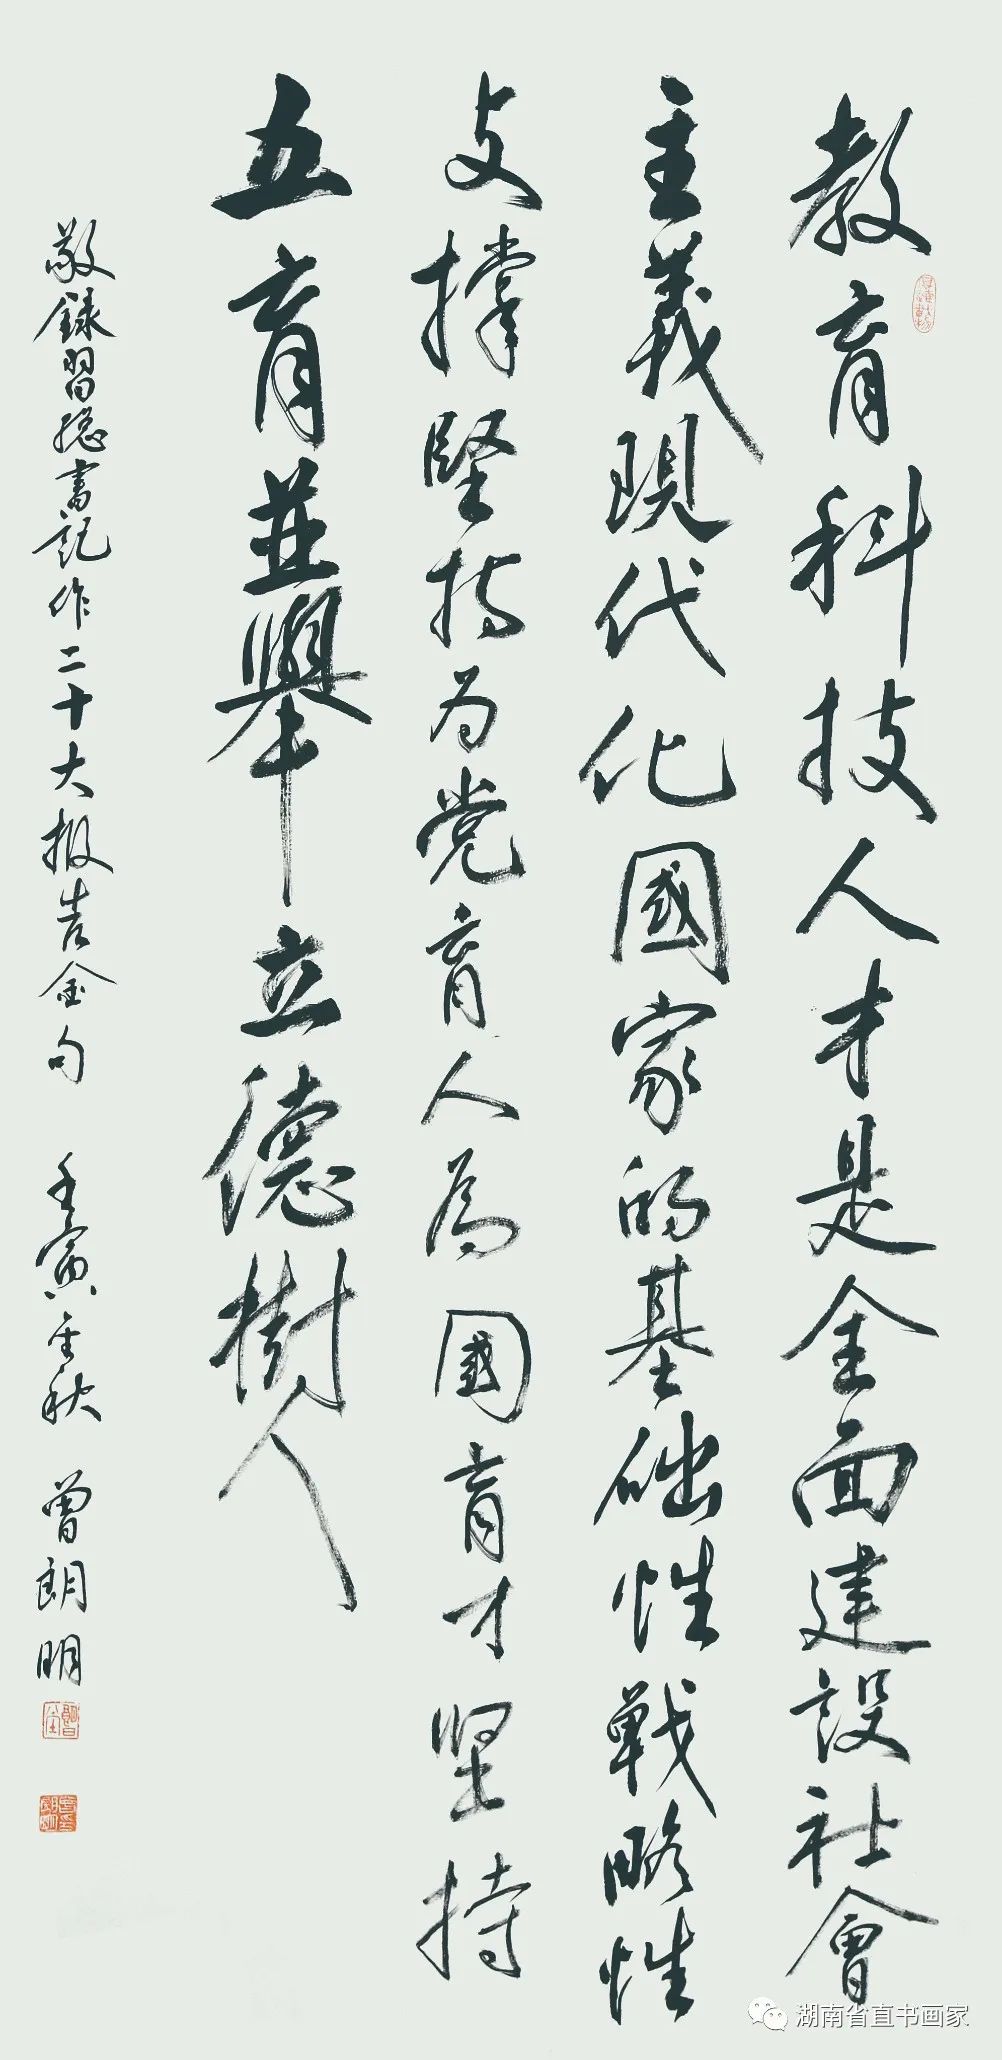 教育科技人才是全面建设社會
主義現代化國家的基础性戰略性
支撐堅持为党育人為國育才坚持
五育並舉立德樹人
敬錄習總書記作二十大报告金句 壬寅金秋 曾朗明
湖南省直书画家